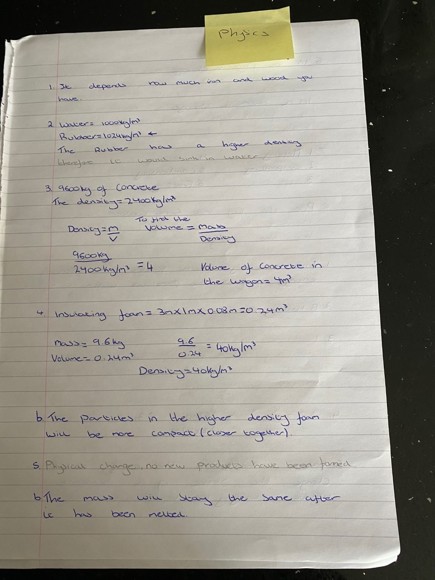 Physics
1. It depends how much iron and wood you
have.
2. Water = 1000kg/m³
Rubber = 1024kg/m³ ←
The Rubber has a higher density
therefore it would sink in water.
3. 9600kg of Concrete
The density = 2400kg/m³
Density = m/V
To find the
Volume = mass/Density
9600kg/2400kg/m³ = 4
Volume of Concrete in
the wagon = 4m³
4. Insulating foam = 3m x 1m x 0.08m = 0.24m³
mass = 9.6kg
Volume = 0.24m³
9.6/0.24 = 40kg/m³
Density = 40kg/m³
b. The particles in the higher density foam
will be more compact (closer together).
5. Physical change, no new products have been formed
b The mass will stay the same after
it has been melted.